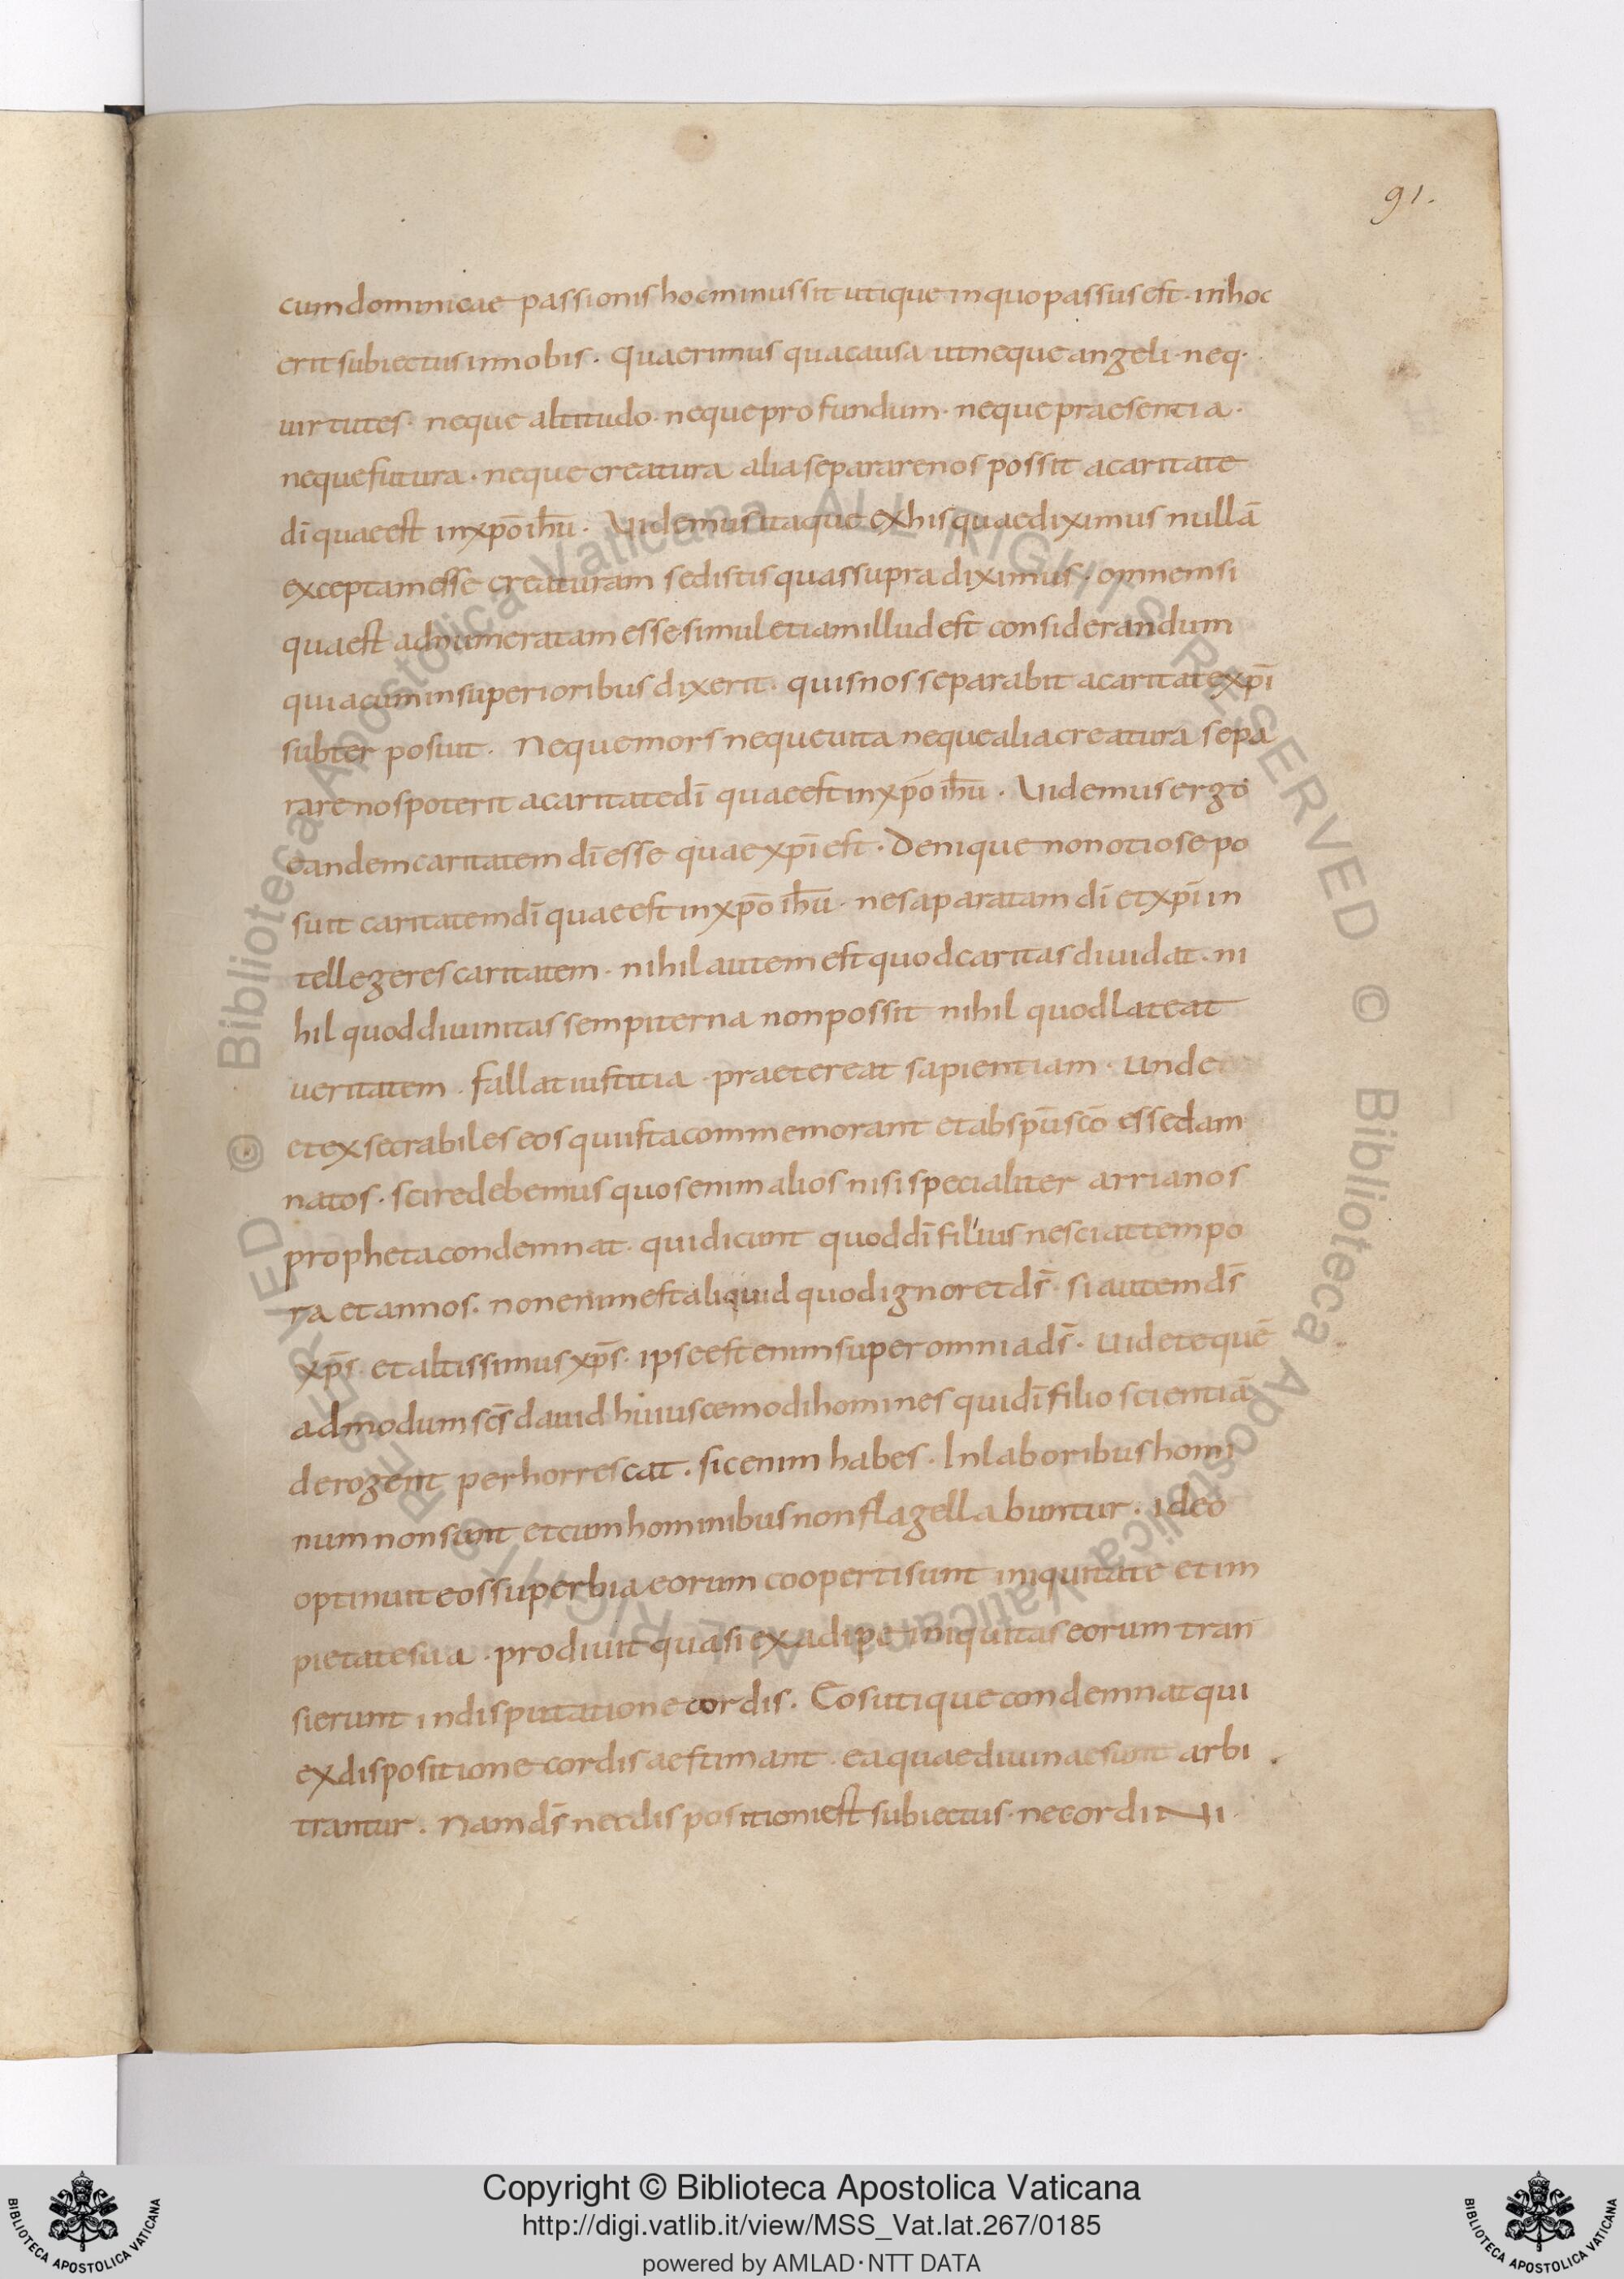 91.
cum dominicae passionis hoc minus sit utique in quo passus est · in hoc
erit subiectus in nobis · Quaerimus qua causa ut neque angeli · neq·
uirtutes · neque altitudo · neque profundum · neque praesentia ·
neque futura · neque creatura alia separare nos possit a caritate
dī quae est in xp̄o ih̄u · Uidemus itaque ex his quae diximus nullā
exceptam esse creaturam sed istis quas supra diximus · omnem si
qua est adnumeratam esse simul etiam illud est considerandum
quia cum in superioribus dixerit · quis nos separabit a caritate xp̄i
subter posuit · Neque mors neque uita neque alia creatura sepa
rare nos poterit a caritate dī quae est in xp̄o ih̄u · Uidemus ergo
eandem caritatem dī esse quae xp̄i est · Denique non otiose po
suit caritatem dī quae est in xp̄o ih̄u · ne saparatam dī et xp̄i in
tellegeres caritatem · nihil autem est quod caritas diuidat · ni
hil quod diuinitas sempiterna non possit nihil quod lateat
ueritatem · fallat iustitia · praetereat sapientiam · unde
et exsecrabiles eos qui ista commemorant et ab sp̄u sc̄o esse dam
natos · scire debemus quos enim alios nisi specialiter arrianos
propheta condemnat · qui dicunt quod dī filius nesciat tempo
ra et annos · non enim est aliquid quod ignoret ds̄ · si autem ds̄
xp̄s · et altissimus xp̄s · ipse est enim super omnia ds̄ · Uidete quē
admodum sc̄s dauid huiuscemodi homines qui dī filio scientiā
derogent perhorrescat · sic enim habes · In laboribus homi
num non sunt et cum hominibus non flagellabuntur · ideo
optinuit eos superbia eorum cooperti sunt iniquitate et im
pietate sua · prodiuit quasi ex adipe iniquitas eorum tran
sierunt in disputatione cordis · Eos utique condemnat qui
ex dispositione cordis aestimant · ea quae diuinae sunt arbi
trantur · Nam ds̄ nec dispositioni est subiectus · nec ordiNi ·
© Biblioteca Apostolica Vaticana ALL RIGHTS RESERVED
© Biblioteca Apostolica Vaticana ALL RIGHTS RESERVED
BIBLIOTECA APOSTOLICA VATICANA
Copyright © Biblioteca Apostolica Vaticana
http://digi.vatlib.it/view/MSS_Vat.lat.267/0185
powered by AMLAD·NTT DATA
BIBLIOTECA APOSTOLICA VATICANA